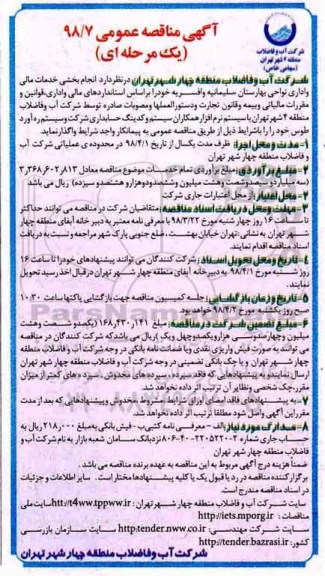 شرکت آب و فاضلاب
منطقه ۴ شهر تهران
(سهامی خاص)
آگهی مناقصه عمومی ۹۸/۷
(یک مرحله ای)
شرکت آب وفاضلاب منطقه چهار شهر تهران در نظر دارد انجام بخشی خدمات مالی
واداری نواحی بهارستان سلیمانیه وافسریه خود را بر اساس استانداردهای مالی واداری،قوانین و
مقررات مالیاتی وبیمه وقانون تجارت ودستورالعملها ومصوبات صادره توسط شرکت آب وفاضلاب
منطقه ۴ شهر تهران با سیستم نرم افزار همکاران سیستم و کدینگ حسابداری شرکت وسیستم ره آورد
طوس خود را با شرایط ذیل از طریق مناقصه عمومی به پیمانکار واجد شرایط واگذار نماید.
۱- مدت و محل اجرا: ظرف مدت یکسال از تاریخ ۹۸/۴/۱ در محدوده ی عملیاتی شرکت آب
و فاضلاب منطقه چهار شهر تهران
۲- مبلغ برآوردی: مبلغ برآوردی تمام خدمات موضوع مناقصه معادل ۳،۳۶۸،۶۰۲،۸۱۳
(سه میلیاردو سیصدوشصت وهشت میلیون وششصدودوهزارو هشتصدو سیزده) ریال می باشد
۲- محل اعتبار: از محل اعتبارات جاری شرکت
مهلت ومحل دریافت اسناد مناقصه: متقاضیان شرکت در مناقصه می توانند حداکثر
تا ساعت ۱۶ روز چهار شنبه مورخ ۹۸/۳/۲۲ با معرفی نامه معتبر به دبیر خانه آبفای منطقه چهار
شهر تهران به نشانی تهران خیابان بهشت، ضلع جنوبی پارک شهر مراجعه و نسبت به دریافت
اسناد مناقصه اقدام نمایند.
۴- تاریخ ومحل تحویل اسناد: شرکت کنندگان می توانند پیشنهادهای خود را تا ساعت ۱۶
روز شنبه مورخ ۹۸/۴/۱ به دبیرخانه آبفای منطقه چهار شهر تهران در قبال اخذ رسید تحویل
نمایند.
۵- تاریخ وزمان بازگشایی: جلسه کمیسیون مناقصه جهت بازگشایی پاکتها ساعت ۱۰:۳۰
صبح روز یکشنبه مورخ ۹۸/۴/۲ خواهد بود.
۶- مبلغ تضمین شرکت در مناقصه: مبلغ ۱۶۸،۴۳۰،۱۴۱ (یکصدو شصت وهشت
میلیون وچهارصدوسی هزارویکصدوچهل ویک) ریال می باشد که شرکت کنندگان در مناقصه
می توانند به صورت فیش واریزی نقدی ویا ضمانت نامه بانکی در وجه شرکت آب وفاضلاب منطقه
چهار شهر تهران و یا چک بانکی تضمینی در وجه شرکت آب و فاضلاب منطقه چهار شهر تهران
ارسال نمایندو به پیشنهادهایی که فاقد سپرده، سپرده های مخدوش، سپرده های کمتر از میزان
مقرر،چک شخصی ونظایر آن ترتیب اثر داده نخواهد شد.
۷- به پیشنهادهای فاقد امضای اوراق شرایط، مشروط، مخدوش وپیشنهادهایی که بعد از مدت
مقرراین آگهی واصل شود مطلقا ترتیب اثر داده نخواهد شد.
۸- مدارک مورد نیاز: الف - معرفی نامه کتبی ب- فیش بانکی به مبلغ ۲۱۸،۰۰۰ ریال به
حساب جاری شماره نزد بانک سامان شعبه بازار به نام شرکت آب و
فاضلاب منطقه چهار شهر تهران
ضمنا هزینه درج آگهی مربوط به این مناقصه به عهده برنده مناقصه می باشد .
برگزار کننده مناقصه در رد یا قبول یک یا کلیه پیشنهادها مختار است . سایر اطلاعات و جزئیات
در اسناد مناقصه مندرج است.
سایت شرکت آب و فاضلاب منطقه چهار شهر تهران: http://t4ww.tppww.ir سایت ملی
مناقصات: http://iets.mporg.ir
سایت شرکت مهندسی: http:/tender.nww.co.ir سایت سازمان بازرسی
کشور: http:/tender.bazrasi.ir
شرکت آب وفاضلاب منطقه چهار شهر تهران